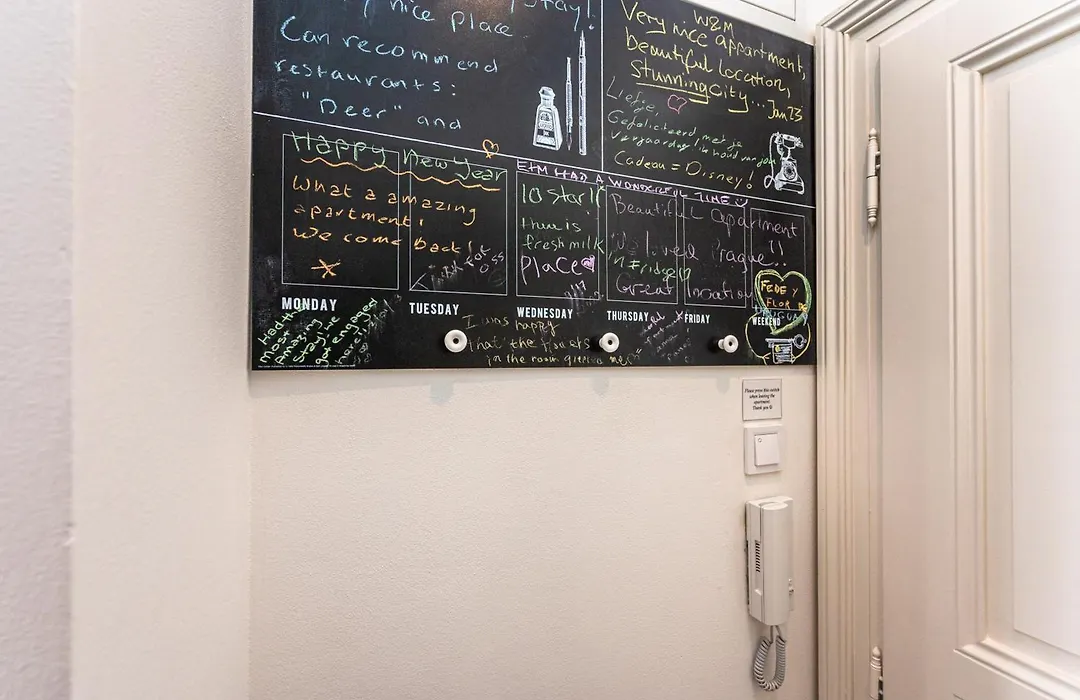 nice place.
Stay!
Can recommend
restaurants:
"Deer" and
W&M
Very nice appartment,
beautiful location,
stunning city... Jan 23
Liefje,
Gefeliciteerd met je
verjaardag ik houd van jou
Cadeau = Disney!
Happy New Year
What a amazing
apartment!
We come back!
E+M HAD A WONDERFUL TIME
10 star!!
fresh milk
Place
in Fridge
Beautiful Apartment
We loved Prague!!
Great location
FEDE Y
FLOR DE
MONDAY
TUESDAY
WEDNESDAY
THURSDAY
FRIDAY
WEEKEND
Had the
most
amazing
stay! we
got engaged
here!!
I was happy
that the flowers
in the room
Please press this switch
when leaving the
apartment.
Thank you